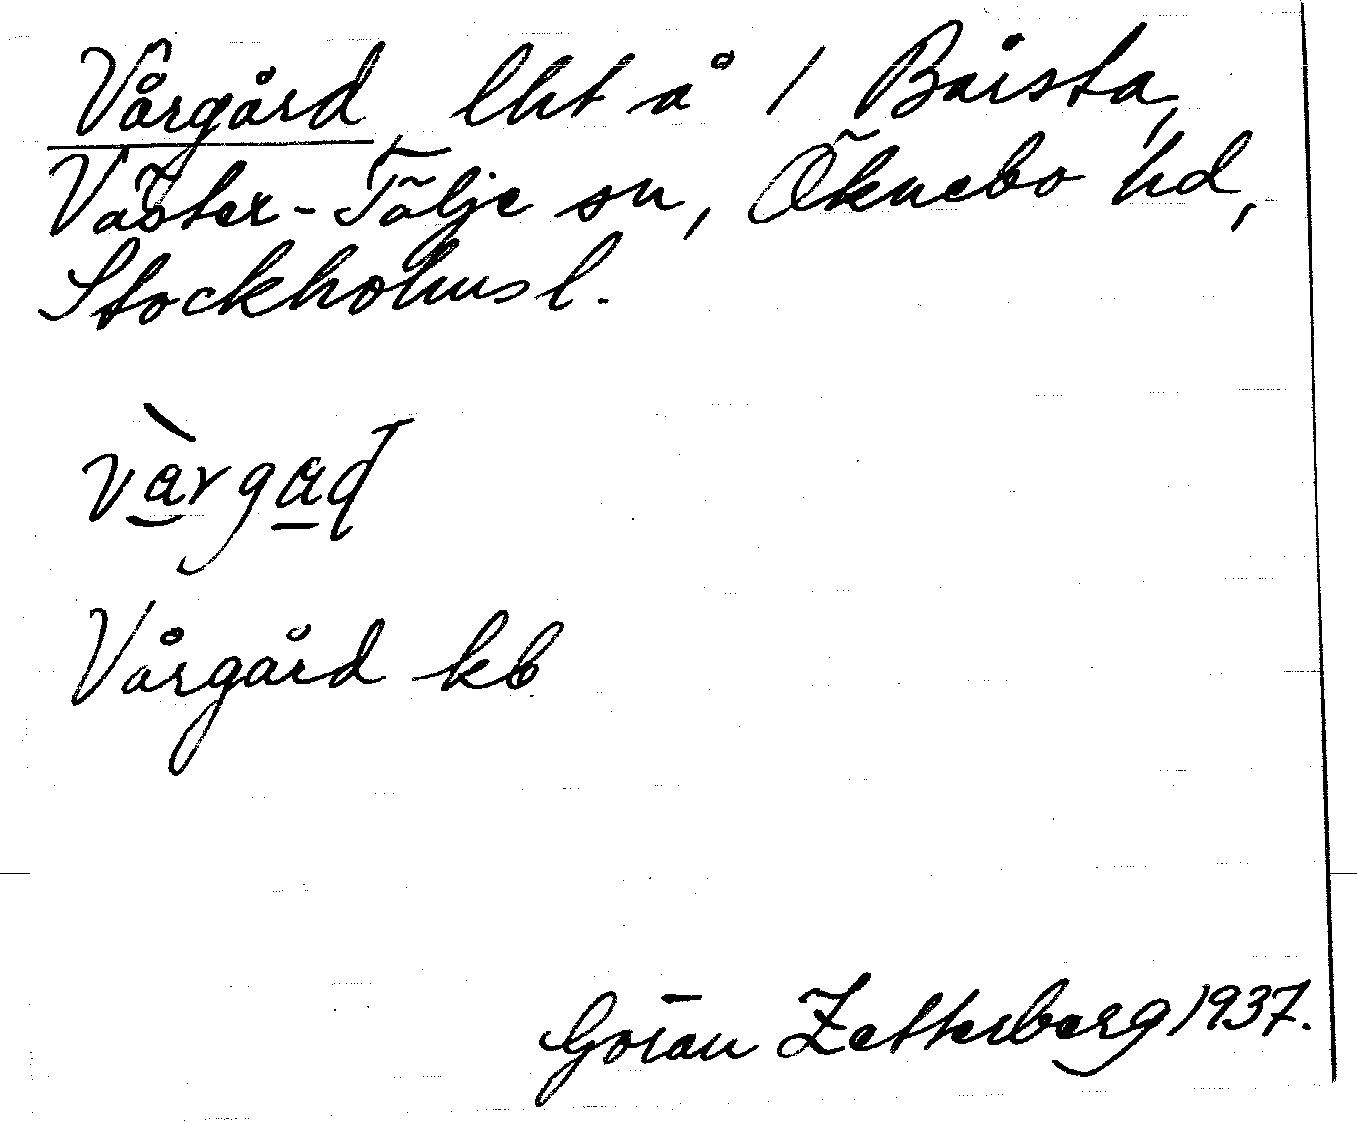 Vårgård, lht å 1 Bårsta,
Väster-Tälje sn, Öknebo hd,
Stockholms l.
Vårgård kb
Göran Zetterberg 1937.